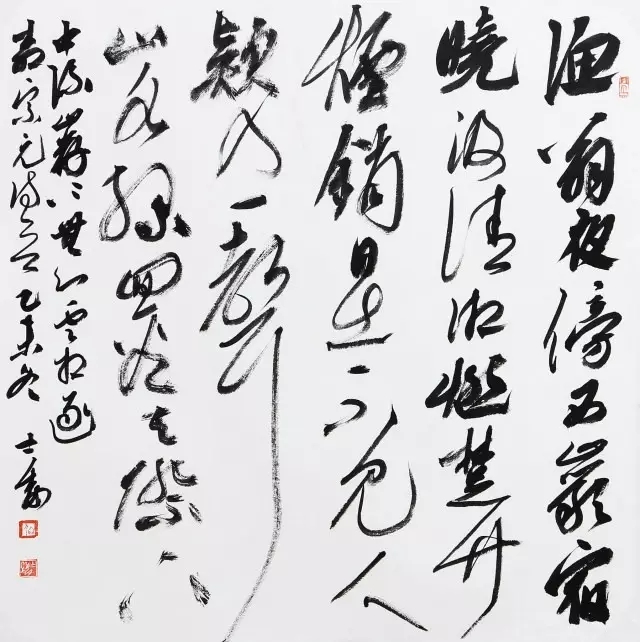 漁翁夜傍西巖宿
曉汲清湘燃楚竹
煙銷日出不見人
欸乃一聲
山水綠回看天際下
中流巖上無心雲相逐
柳宗元詩 乙未冬 士